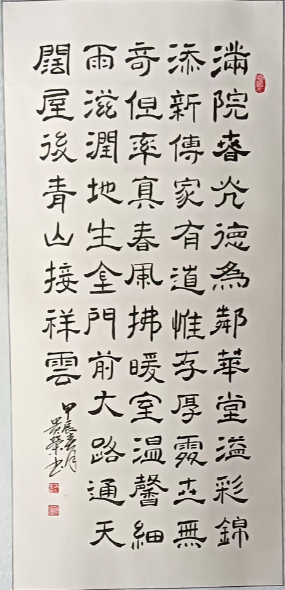 滿院春光德為鄰華堂溢彩錦
添新傳家有道惟存厚處世無
奇但率真春風拂暖室溫馨細
雨滋潤地生金門前大路通天
闊屋後青山接祥雲
甲辰月
榮書